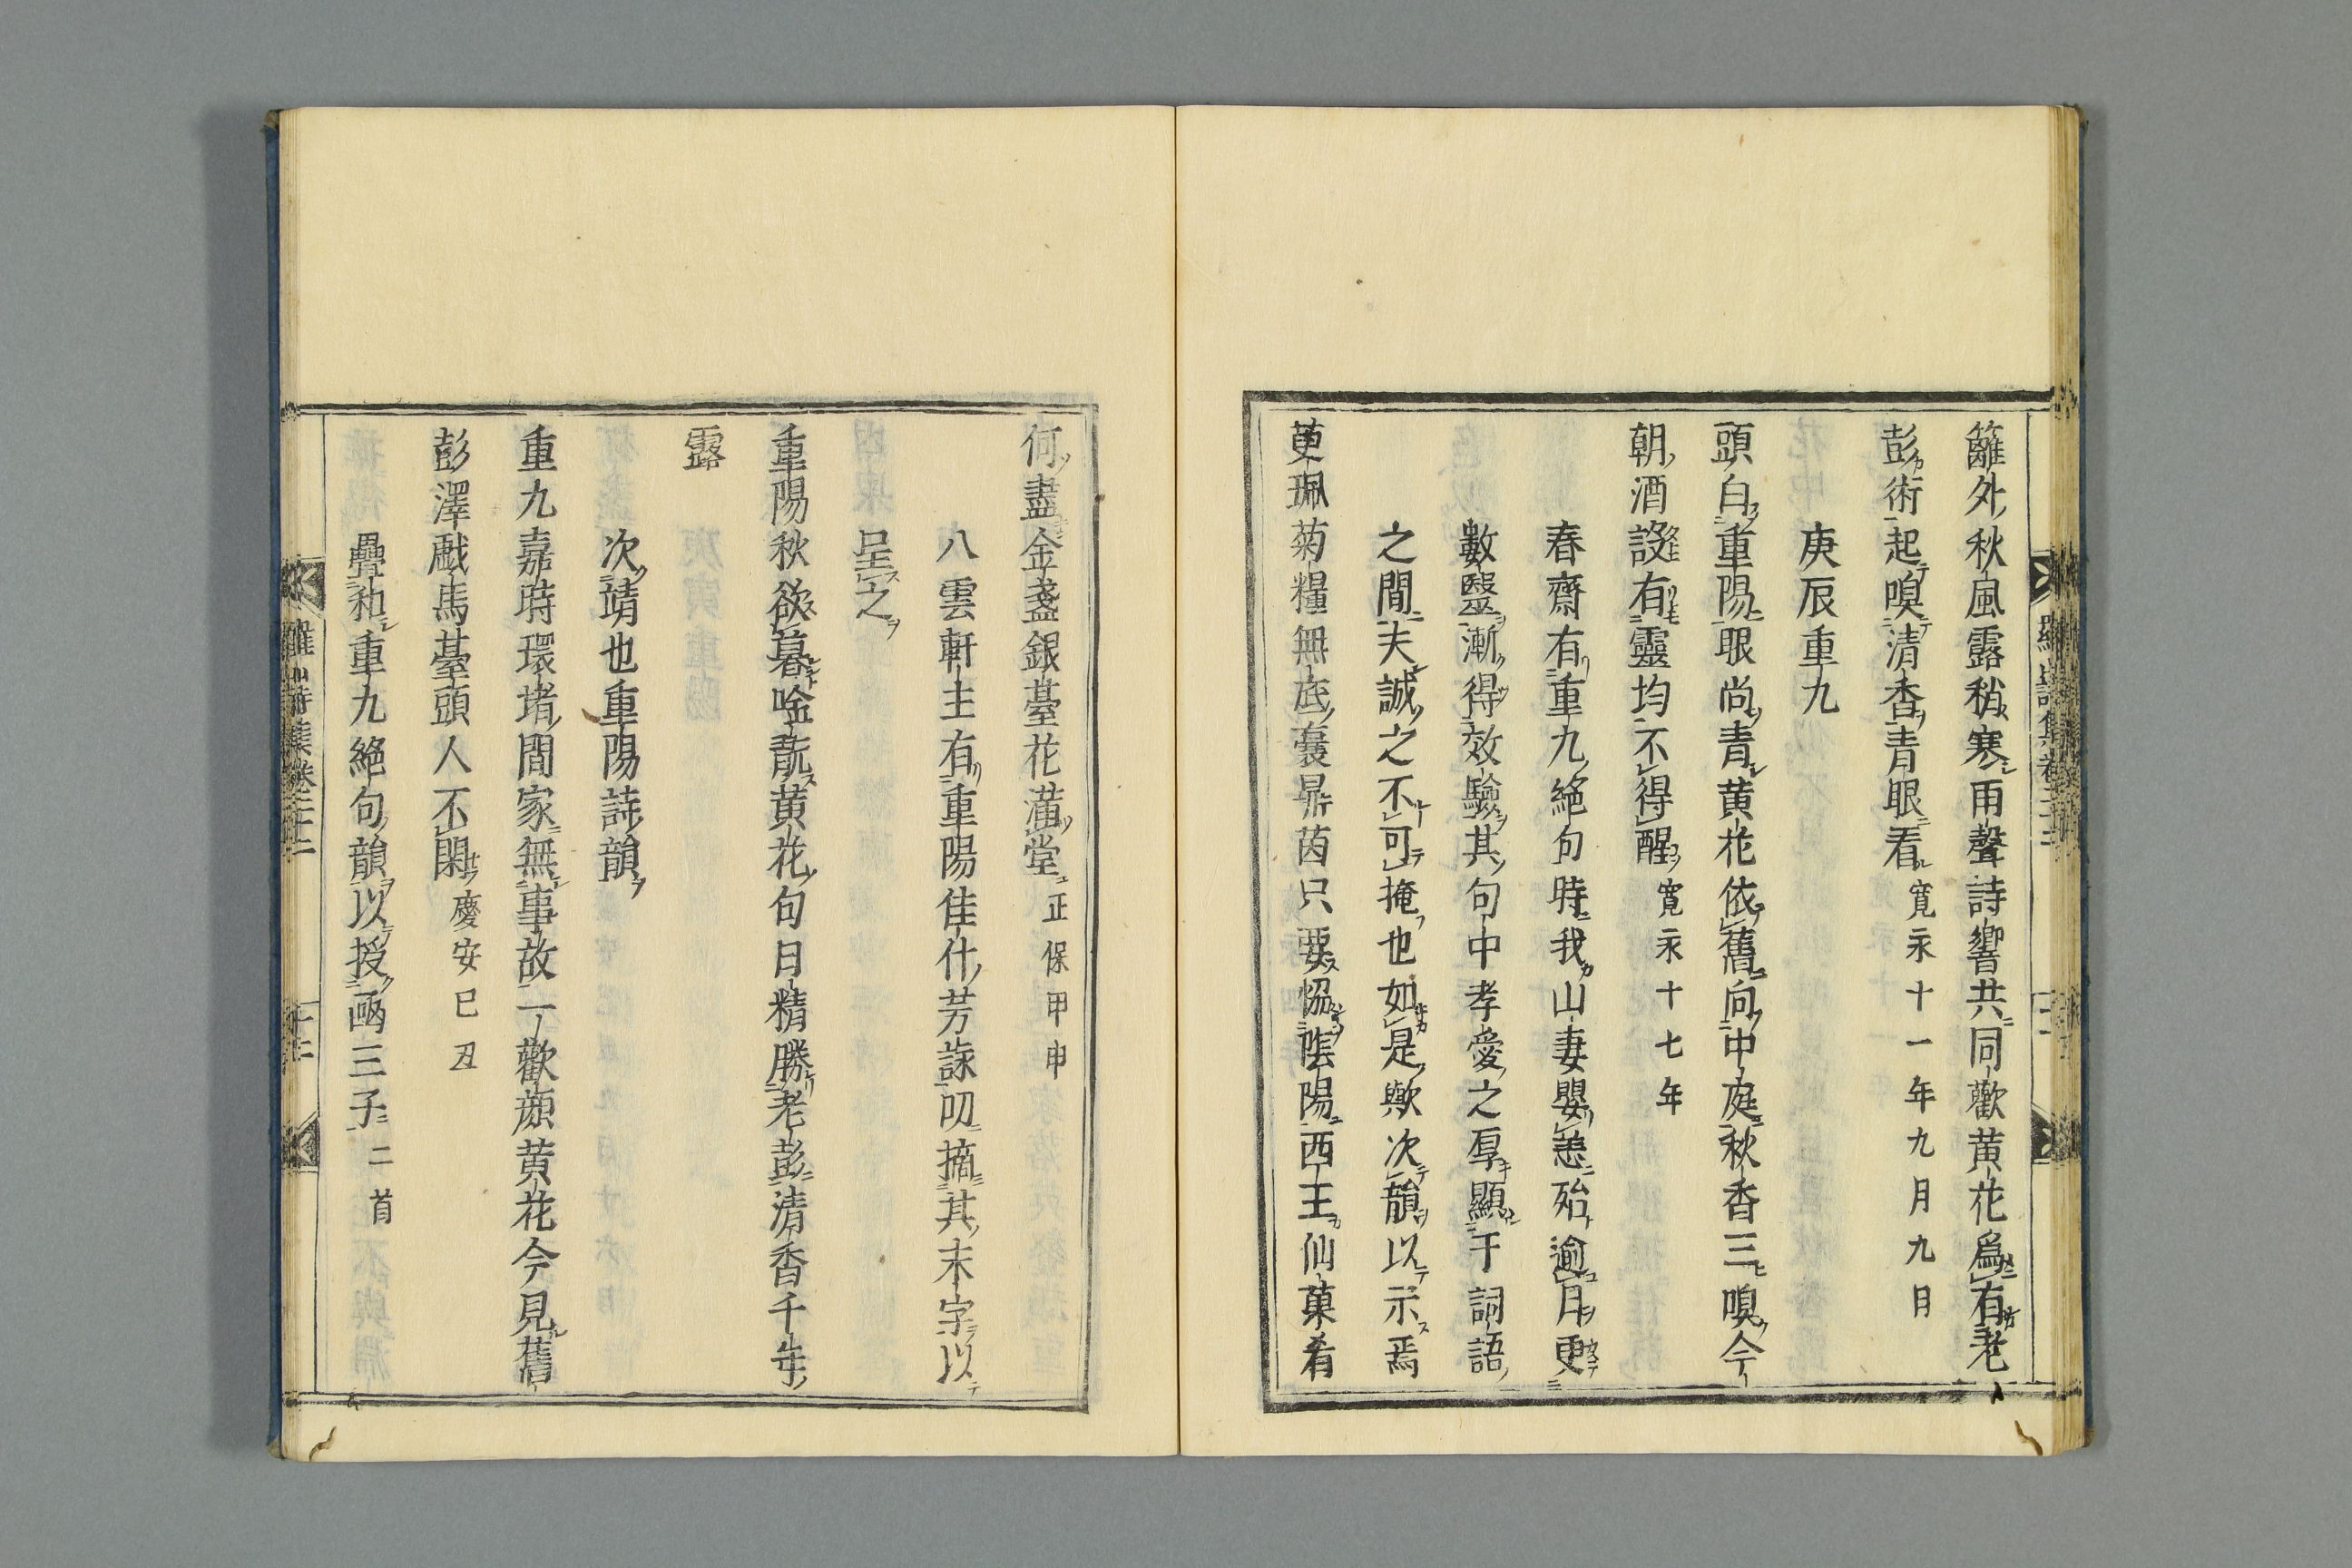 籬外秋風露稍寒雨聲詩響共同歡黄花爲有老
彭術起嗅清香青眼看寛永十一年九月九日
庚辰重九
頭白重陽眼尚青黄花依舊向中庭秋香三嗅今
朝酒設有靈均不得醒寛永十七年
春齋有重九絶句時我山妻嬰恙殆逾月更
數醫漸得效驗其句中孝愛之厚顯于詞語
之間夫誠之不可掩也如是歟次韻以示焉
萸珮菊糧無底囊鼎茵只要恊陰陽西王仙菓肴
何盡金盞銀臺花滿堂正保甲申
八雲軒主有重陽佳什芳詠叨摘其末字以
呈之
重陽秋欲暮唫翫黄花句日精勝老彭清香千年
露
次靖也重陽詩韻
重九嘉時環堵間家無事故一歡顔黄花今見舊
彭澤戲馬臺頭人不閑慶安己丑
疊和重九絶句韻以授凾三子二首
羅山詩集卷三十二
十二